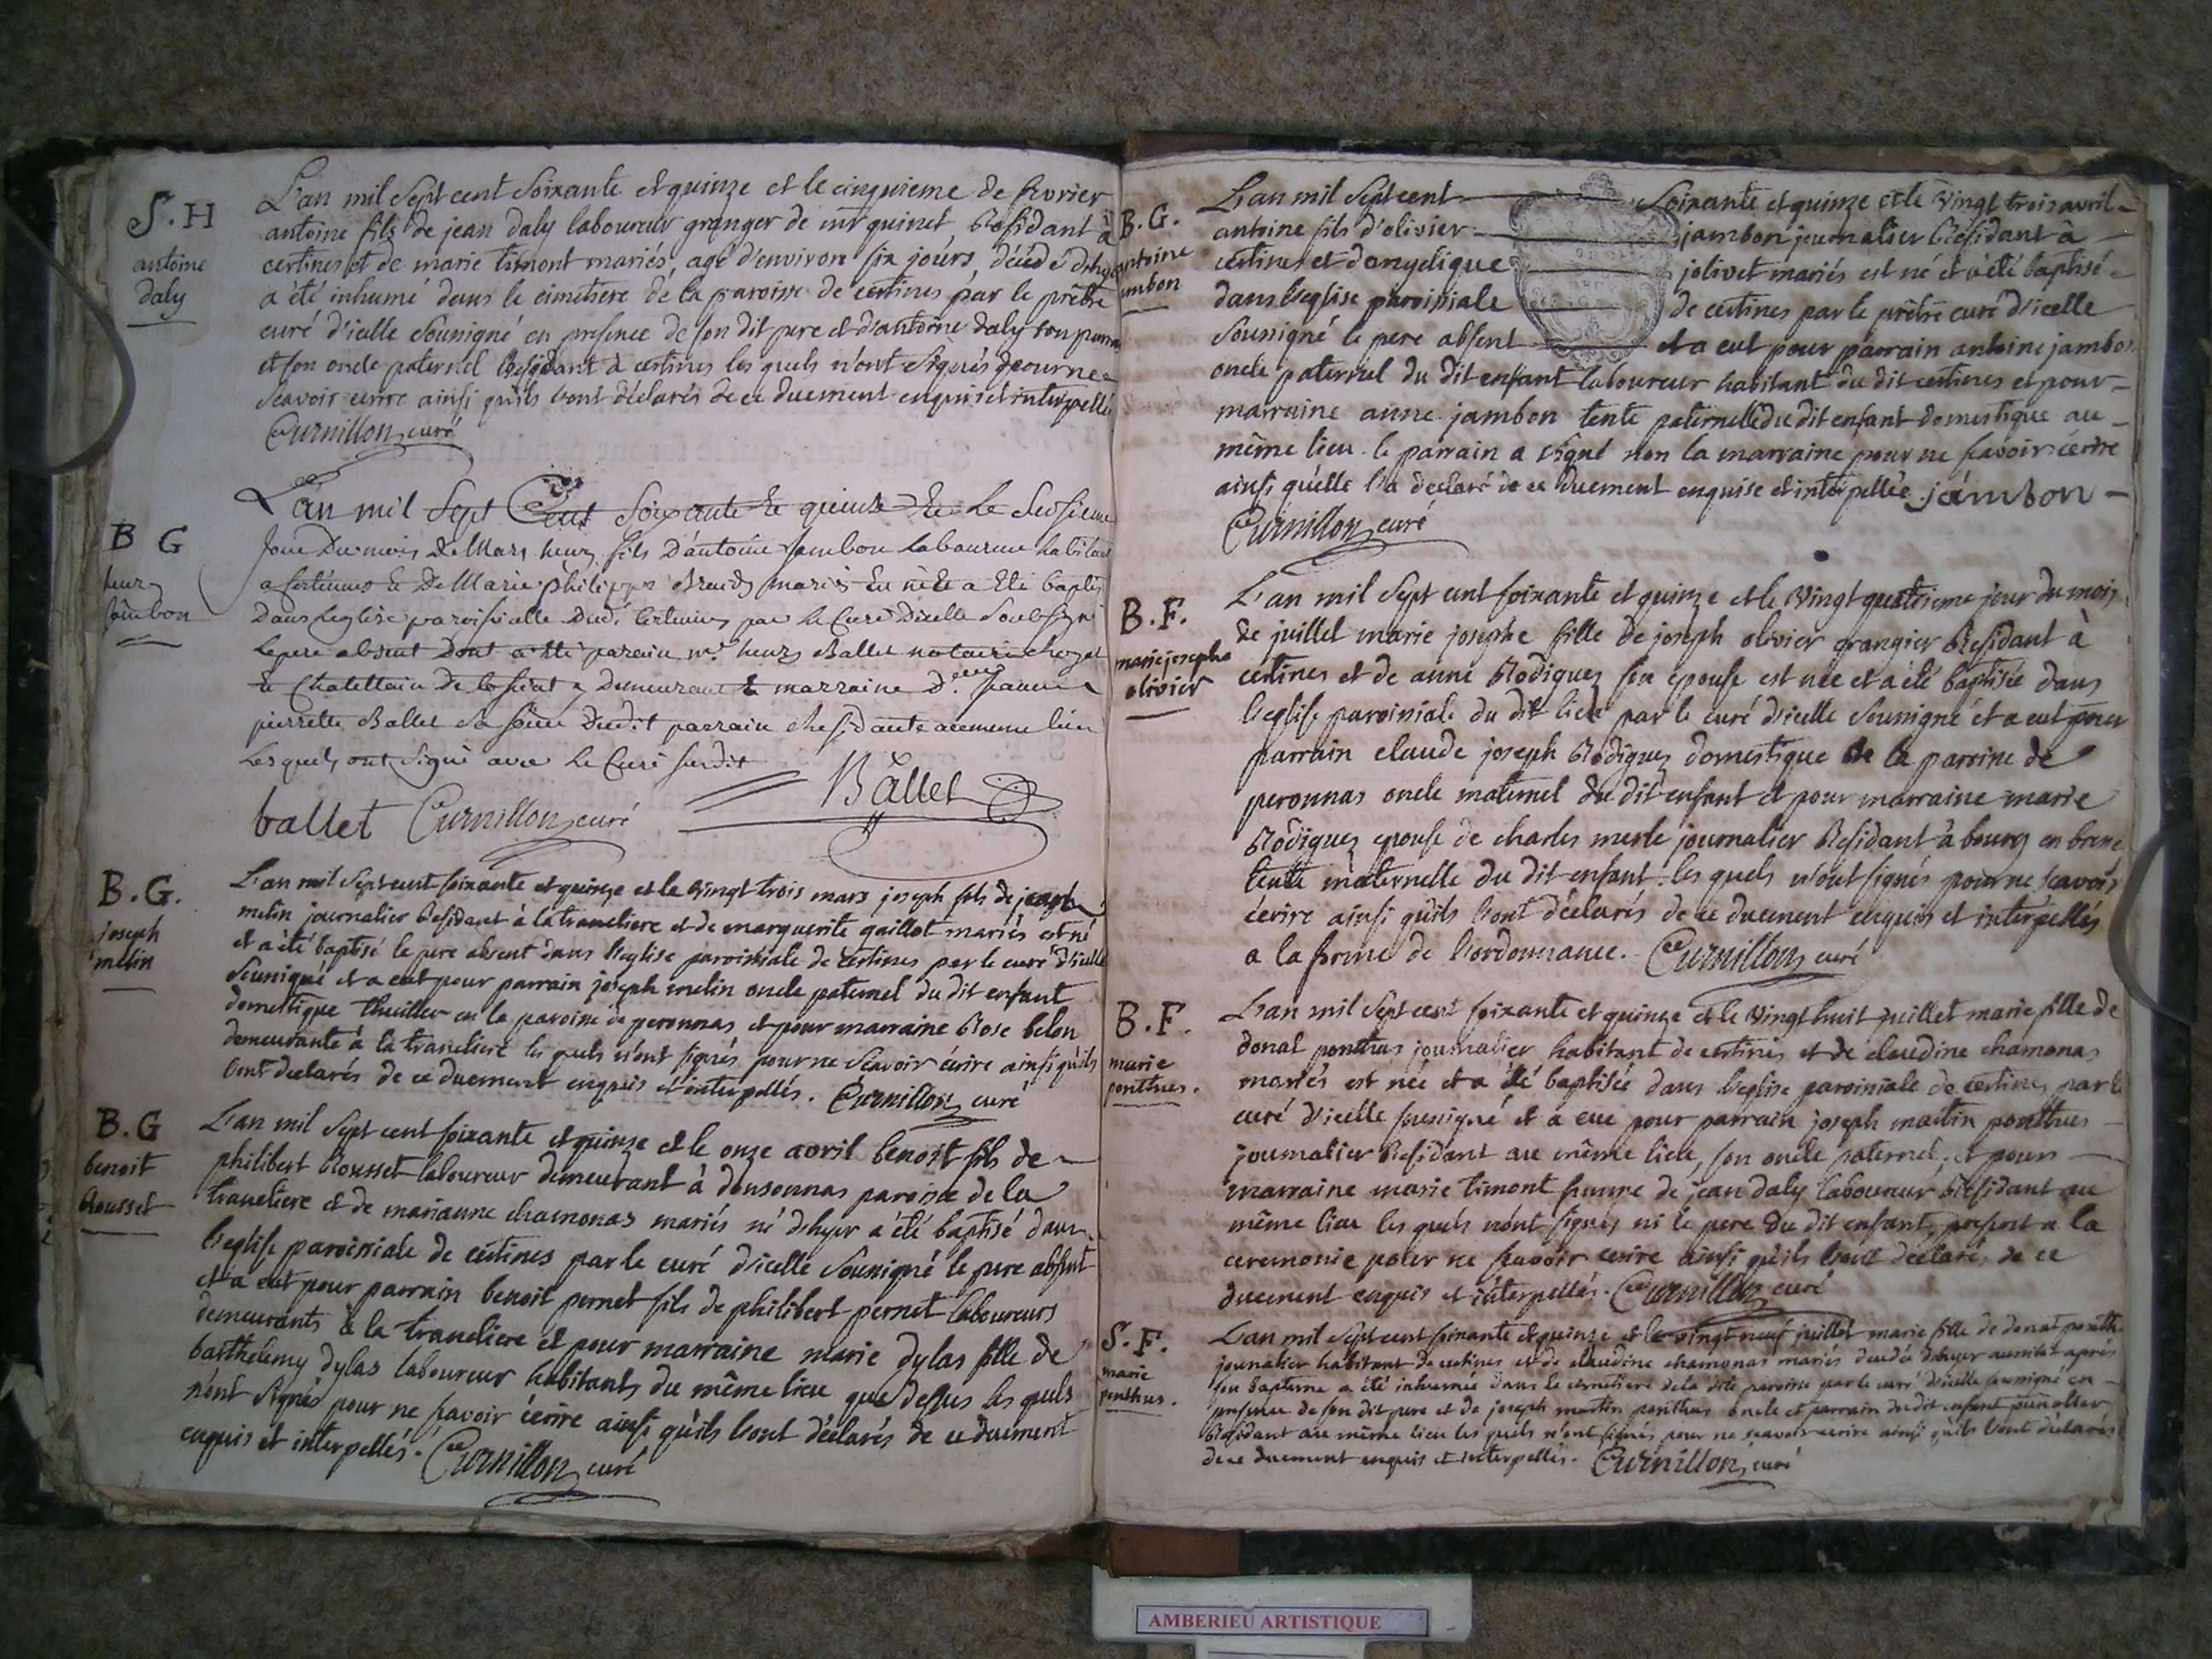 S. H
antoine
daly
L'an mil sept cent soixante et quinze et le cinquieme de fevrier
antoine fils de jean daly laboureur granger de mr quinet residant à
certines et de marie timont mariés, agé d'environ six jours, décédé d'hyer
a été inhumé dans le cimetiere de la paroisse de certines par le prêtre
curé d'icelle soussigné en presence de son dit pere et d'antoine daly son parrain
et son oncle paternel residant à certines les quels n'ont signés pour ne
scavoir ecrire ainsi qu'ils l'ont déclarés de ce duement enquis et interpellés
Curnillon curé
B G
henry
Jambon
L'an mil sept Cent soixante et quinze et le
Jour Du mois de Mars henry fils D'antoine jambon Laboureur habitant
a sertinnes et De Marie philippe mariés est né et a été baptisé
Dans Leglise paroissialle Dud. Certines par le Curé Dicelle Soubsigné
Lepere absent Dont a eté parain mr henry Ballet notaire
et Chatellain de demeurant et marraine D.elle jeanne
pierrette Ballet sa soeur Dudit parrain Residante aumeme lieu
Lesquels ont signé avec le Curé susdit
ballet Curnillon curé Ballet
B. G.
joseph
melin
L'an mil sept cent soixante et quinze et le vingt trois mars joseph fils de joseph
melin journalier residant à la traneliere et de marguerite gaillot mariés est né
et a été baptisé le pere absent dans l'eglise paroissiale de certines par le curé d'icelle
soussigné et a eut pour parrain joseph melin oncle paternel du dit enfant
domestique thuillier en la paroisse de peronnas et pour marraine Rose belon
demeurante à la traneliere les quels n'ont signés pour ne scavoir écrire ainsi qu'ils
l'ont declarés de ce duement enquis et interpellés. Curnillon curé
B. G
benoit
Rousset
L'an mil sept cent soixante et quinze et le onze avril benoit fils de
philibert Rousset laboureur demeurant à donsonnas paroisse de la
traneliere et de marianne chamonas mariés né d'hyer a été baptisé dans
l'eglise paroissiale de certines par le curé d'icelle soussigné le pere absent
et a eut pour parrain benoit pernet fils de philibert pernet laboureurs
demeurants à la traneliere et pour marraine marie dylas fille de
barthelemy dylas laboureur habitants du même lieu que dessus les quels
n'ont signés pour ne scavoir écrire ainsi qu'ils l'ont déclarés de ce duement
enquis et interpellés. Curnillon curé
B. G.
antoine
jambon
L'an mil sept cent soixante et quinze et le vingt trois avril
antoine fils d'olivier jambon journalier residant a
certines et d'angelique jolivet mariés est né et a été baptisé
dans l'eglise paroissiale de certines par le prêtre curé d'icelle
soussigné le pere absent et a eut pour parrain antoine jambon
oncle paternel du dit enfant laboureur habitant du dit certines et pour
marraine anne jambon tente paternelle du dit enfant domestique au
même lieu. le parrain a signé non la marraine pour ne scavoir écrire
ainsi qu'elle l'a declaré de ce duement enquise et interpellée. jambon
Curnillon curé
B. F.
marie josephe
olivier
L'an mil sept cent soixante et quinze et le vingt quatrieme jour du mois
de juillet marie josephe fille de joseph olivier grangier Residant à
certines et de anne Rodiguez son epouse est née et a été baptisée dans
l'eglise paroissiale du dit lieu par le curé d'icelle soussigné et a eut pour
parrain claude joseph Rodiguez domestique de la paroisse de
peronnas oncle maternel du dit enfant et pour marraine marie
Rodiguez epouse de charles merle journalier Residant à bourg en bresse
tente maternelle du dit enfant. les quels n'ont signés pour ne scavoir
écrire ainsi qu'ils l'ont déclarés de ce duement enquis et interpellés
a la forme de l'ordonnance. Curnillon curé
B. F.
marie
ponthus.
L'an mil sept cent soixante et quinze et le vingt huit juillet marie fille de
donat ponthus journalier habitant de certines et de claudine chamonas
mariés est née et a été baptisée dans l'eglise paroissiale de certines par le
curé d'icelle soussigné et a eue pour parrain joseph martin ponthus
journalier Residant au même lieu, son oncle paternel, et pour
marraine marie timont femme de jean daly laboureur Residant au
même lieu les quels n'ont signés ni le pere du dit enfant, present a la
ceremonie pour ne scavoir écrire ainsi qu'ils l'ont declaré, de ce
duement enquis et interpellés. Curnillon curé
S. F.
marie
ponthus.
L'an mil sept cent soixante et quinze et le vingt neuf juillet marie fille de donat ponthus
journalier habitant de certines et de claudine chamonas mariés décédée d'hyer aussitôt après
son baptême a été inhumée dans le cimetiere de la dite paroisse par le curé d'icelle soussigné en
presence de son dit pere et de joseph martin ponthus oncle et parrain du dit enfant journalier
Residant au même lieu les quels n'ont signés pour ne scavoir ecrire ainsi qu'ils l'ont déclarés
de ce duement enquis et interpellés. Curnillon, curé
AMBERIEU ARTISTIQUE